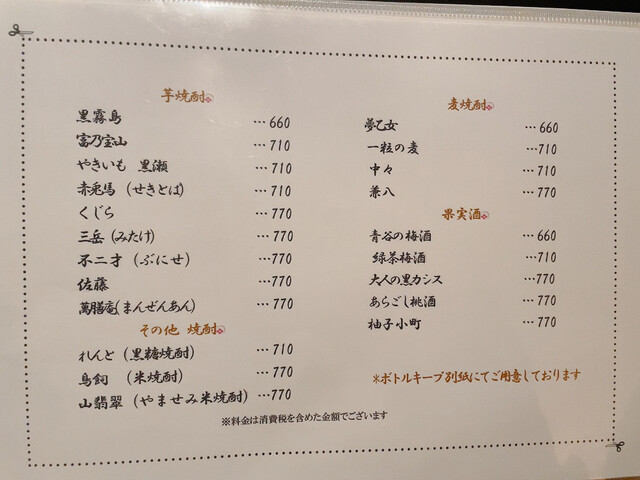 芋焼酎
黒霧島 …660
富乃宝山 …710
やきいも 黒瀬 …710
赤兎馬 (せきとば) …710
くじら …770
三岳 (みたけ) …770
不二才 (ぶにせ) …770
佐藤 …770
萬膳庵(まんぜんあん) …770
その他 焼酎
れんと (黒糖焼酎) …710
鳥飼 (米焼酎) …770
山翡翠 (やませみ米焼酎) …770
麦焼酎
夢乙女 …660
一粒の麦 …710
中々 …710
兼八 …770
果実酒
青谷の梅酒 …660
緑茶梅酒 …710
大人の黒カシス …770
あらごし桃酒 …770
柚子小町 …770
*ボトルキープ別紙にてご用意しております
※料金は消費税を含めた金額でございます